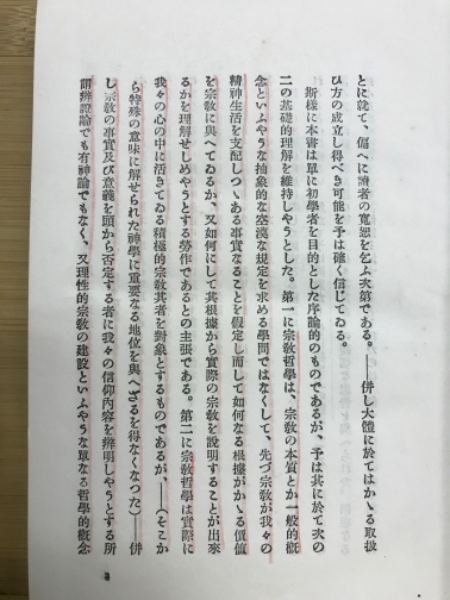 とに就て、偏へに讀者の寬恕を乞ふ次第である。――併し大體に於てはかゝる取扱
ひ方の成立し得べき可能を予は確く信じてゐる。
斯樣に本書は單に初學者を目的とした序論的のものであるが、予は其に於て次の
二の基礎的理解を維持しやうとした。第一に宗敎哲學は、宗敎の本質とか一般的槪
念といふやうな抽象的な空漠な規定を求める學問ではなくして、先づ宗敎が我々の
精神生活を支配しつゝある事實なることを假定し而して如何なる根據がかゝる價値
を宗敎に與へてゐるか、又如何にして其根據から實際の宗敎を說明することが出來
るかを理解せしめやうとする勞作であるとの主張である。第二に宗敎哲學は實際に
我々の心の中に活きてゐる積極的宗敎其者を對象とするものであるが、――(そこか
ら特殊の意味に解せられた神學に重要なる地位を與へざるを得なくなつた)――併
し宗敎の事實及び意義を頭から否定する者に我々の信仰內容を辨明しやうとする所
謂辨證論でも有神論でもなく、又理性的宗敎の建設といふやうな單なる哲學的槪念